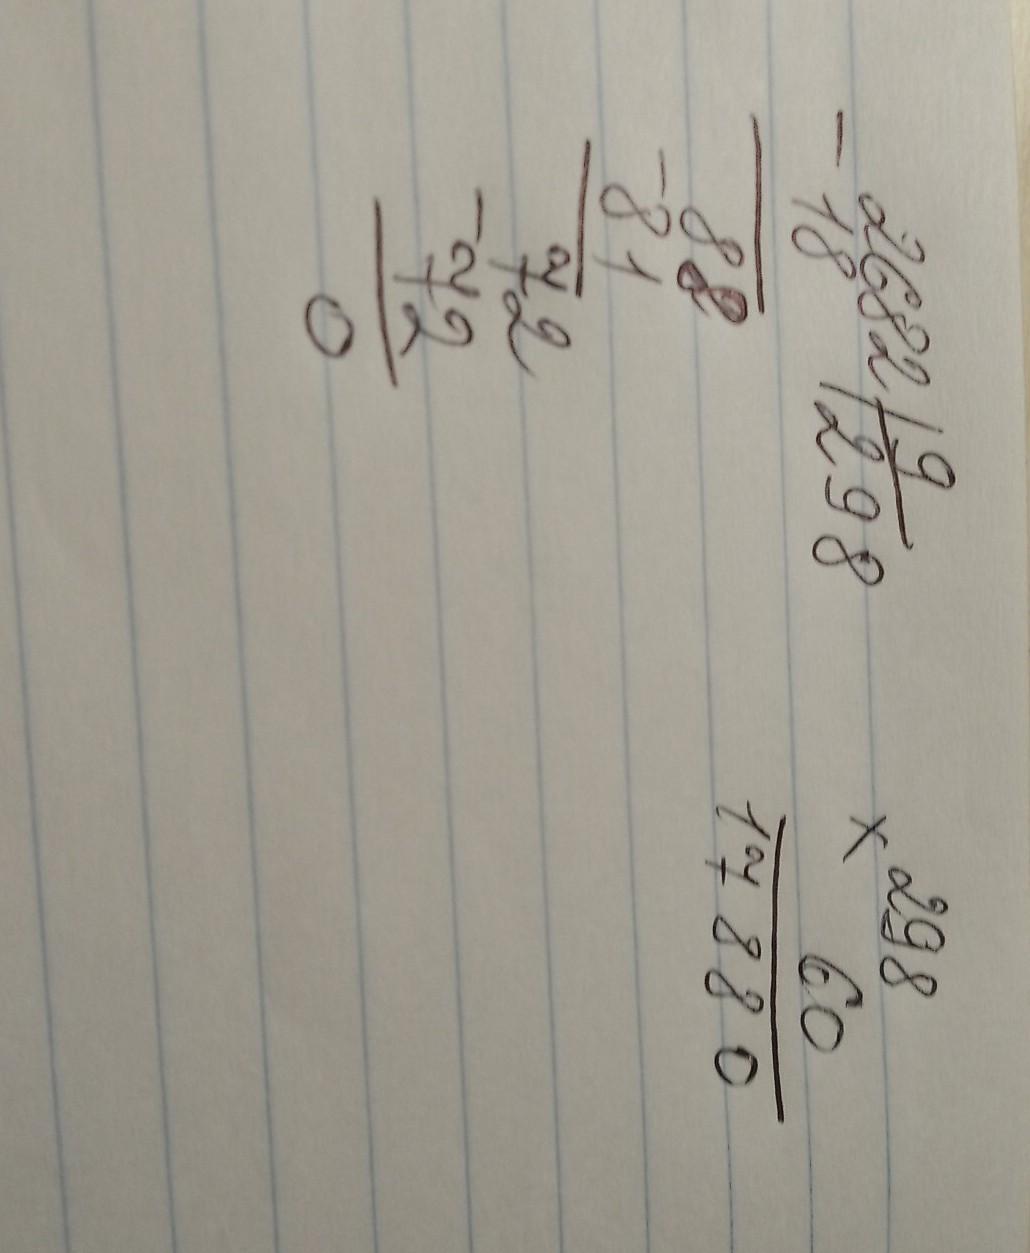 2682 | 9
- 18 298
88
- 81
72
- 72
0
298
× 60
17880